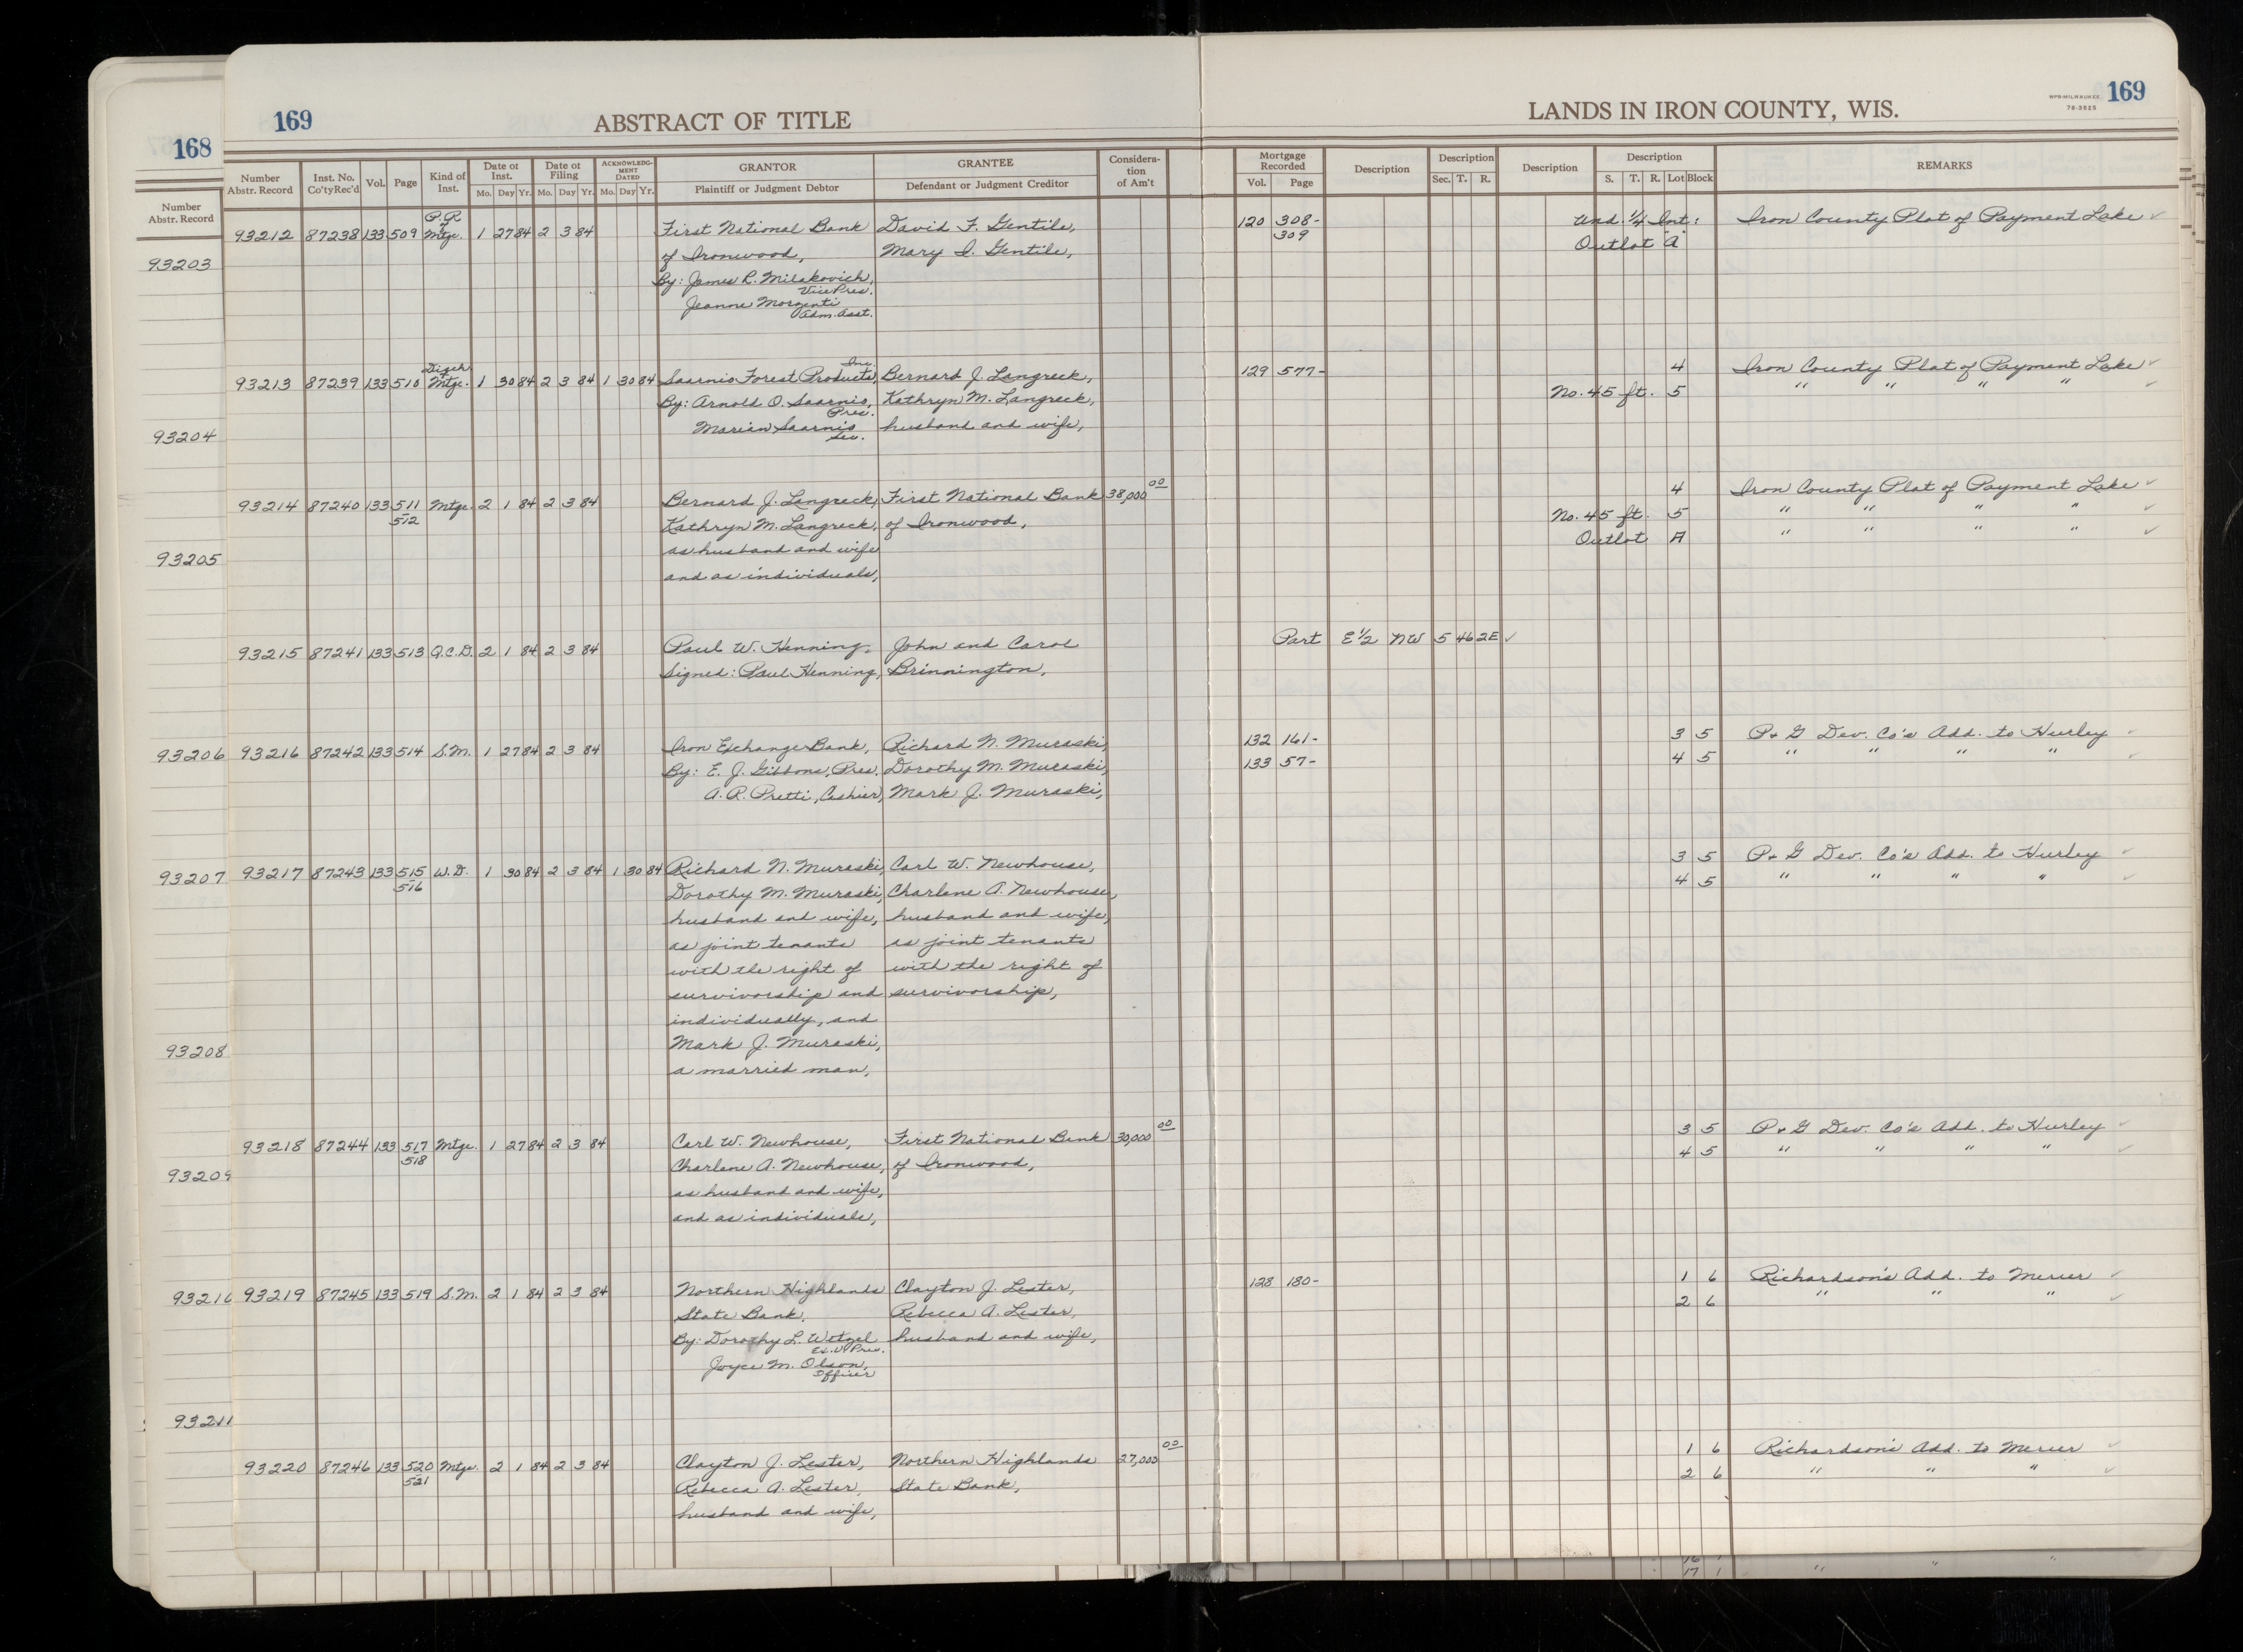 169
ABSTRACT OF TITLE
LANDS IN IRON COUNTY, WIS.
WPB-MILWAUKEE
78-3525
169
168
Number Abstr. Record
93203
93204
93205
93206
93207
93208
93209
9321
93211
Number Abstr. Record | Inst. No. Co'ty Rec'd | Vol. | Page | Kind of Inst. | Date of Inst. Mo. Day Yr. | Date of Filing Mo. Day Yr. | ACKNOWLEDGMENT DATED Mo. Day Yr. | GRANTOR Plaintiff or Judgment Debtor | GRANTEE Defendant or Judgment Creditor | Considera-tion of Am't | Mortgage Recorded Vol. Page | Description | Description Sec. T. R. | Description | Description S. T. R. Lot Block | REMARKS
93212 87238 133 509 P.R. of Mtge. 1 27 84 2 3 84 First National Bank David F. Gentile, 120 308- Und. 1/4 Int: Iron County Plat of Payment Lake ✓
of Ironwood, Mary I. Gentile, 309 Outlot "A"
By: James R. Milakovich,
Vice Pres.
Jeanne Morzenti
Adm. Asst.
93213 87239 133 510 Disch. Mtge. 1 30 84 2 3 84 1 30 84 Saarnio Forest Products, Inc. Bernard J. Langreck, 129 577- 4 Iron County Plat of Payment Lake ✓
By: Arnold O. Saarnio, Pres. Kathryn M. Langreck, No. 45 ft. 5 " " " " ✓
Marian Saarnio Sec. husband and wife,
93214 87240 133 511 Mtge. 2 1 84 2 3 84 Bernard J. Langreck, First National Bank 38,000 00 4 Iron County Plat of Payment Lake ✓
512 Kathryn M. Langreck, of Ironwood, No. 45 ft. 5 " " " " ✓
as husband and wife Outlot A " " " " ✓
and as individuals,
93215 87241 133 513 Q.C.D. 2 1 84 2 3 84 Paul W. Henning, John and Carol Part E 1/2 NW 5 46 2E ✓
Signed: Paul Henning, Brinnington,
93216 87242 133 514 S.M. 1 27 84 2 3 84 Iron Exchange Bank, Richard N. Muraski, 132 161- 3 5 P & G Dev. Co's Add. to Hurley ✓
By: E. J. Gibbons, Pres. Dorothy M. Muraski, 133 57- 4 5 " " " " ✓
A. R. Pretti, Cashier, Mark J. Muraski,
93217 87243 133 515 W.D. 1 30 84 2 3 84 1 30 84 Richard N. Muraski, Carl W. Newhouse, 3 5 P & G Dev. Co's Add. to Hurley ✓
516 Dorothy M. Muraski, Charlene A. Newhouse, 4 5 " " " " ✓
husband and wife, husband and wife,
as joint tenants as joint tenants
with the right of with the right of
survivorship and survivorship,
individually, and
Mark J. Muraski,
a married man,
93218 87244 133 517 Mtge. 1 27 84 2 3 84 Carl W. Newhouse, First National Bank 30,000 00 3 5 P & G Dev. Co's Add. to Hurley ✓
518 Charlene A. Newhouse, of Ironwood, 4 5 " " " " ✓
as husband and wife,
and as individuals,
93219 87245 133 519 S.M. 2 1 84 2 3 84 Northern Highlands Clayton J. Lester, 128 180- 1 6 Richardson's Add. to Mercer ✓
State Bank, Rebecca A. Lester, 2 6 " " " ✓
By: Dorothy L. Wetzel husband and wife,
Ex. V. Pres.
Joyce M. Olson,
Officer
93220 87246 133 520 Mtge. 2 1 84 2 3 84 Clayton J. Lester, Northern Highlands 27,000 00 1 6 Richardson's Add. to Mercer ✓
521 Rebecca A. Lester, State Bank, 2 6 " " " ✓
husband and wife,
16 1 " " "
17 1